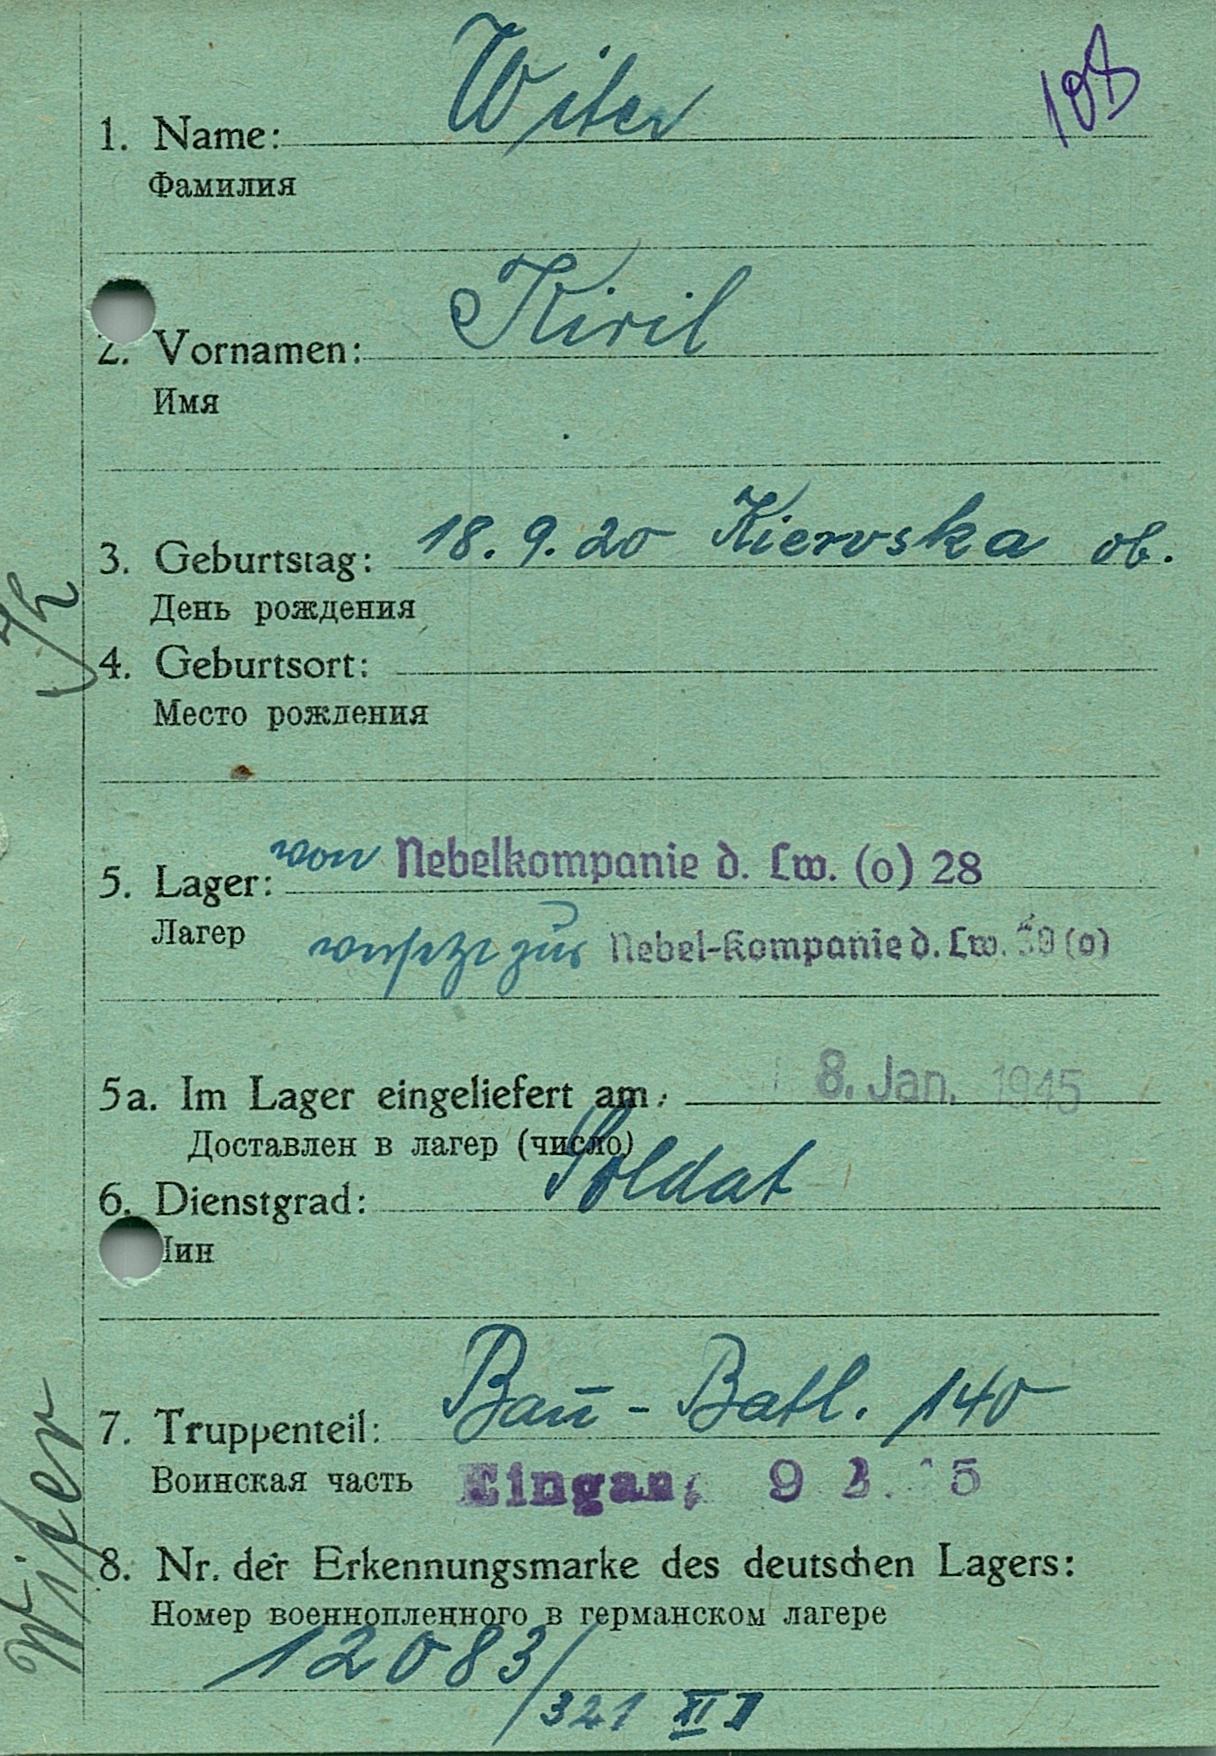 108
1. Name: Witer
Фамилия
2. Vornamen: Kiril
Имя
3. Geburtstag: 18.9.20 Kiewska ob.
День рождения
4. Geburtsort:
Место рождения
5. Lager: von Nebelkompanie d. Lw. (o) 28
Лагер versetzt zur Nebel-Kompanie d. Lw. 50 (o)
5a. Im Lager eingeliefert am: 8. Jan. 1945
Доставлен в лагер (число)
6. Dienstgrad: Soldat
Чин
7. Truppenteil: Bau-Batl. 140
Воинская часть Eingang 9
8. Nr. der Erkennungsmarke des deutschen Lagers:
Номер военнопленного в германском лагере
12083/
321
Witer